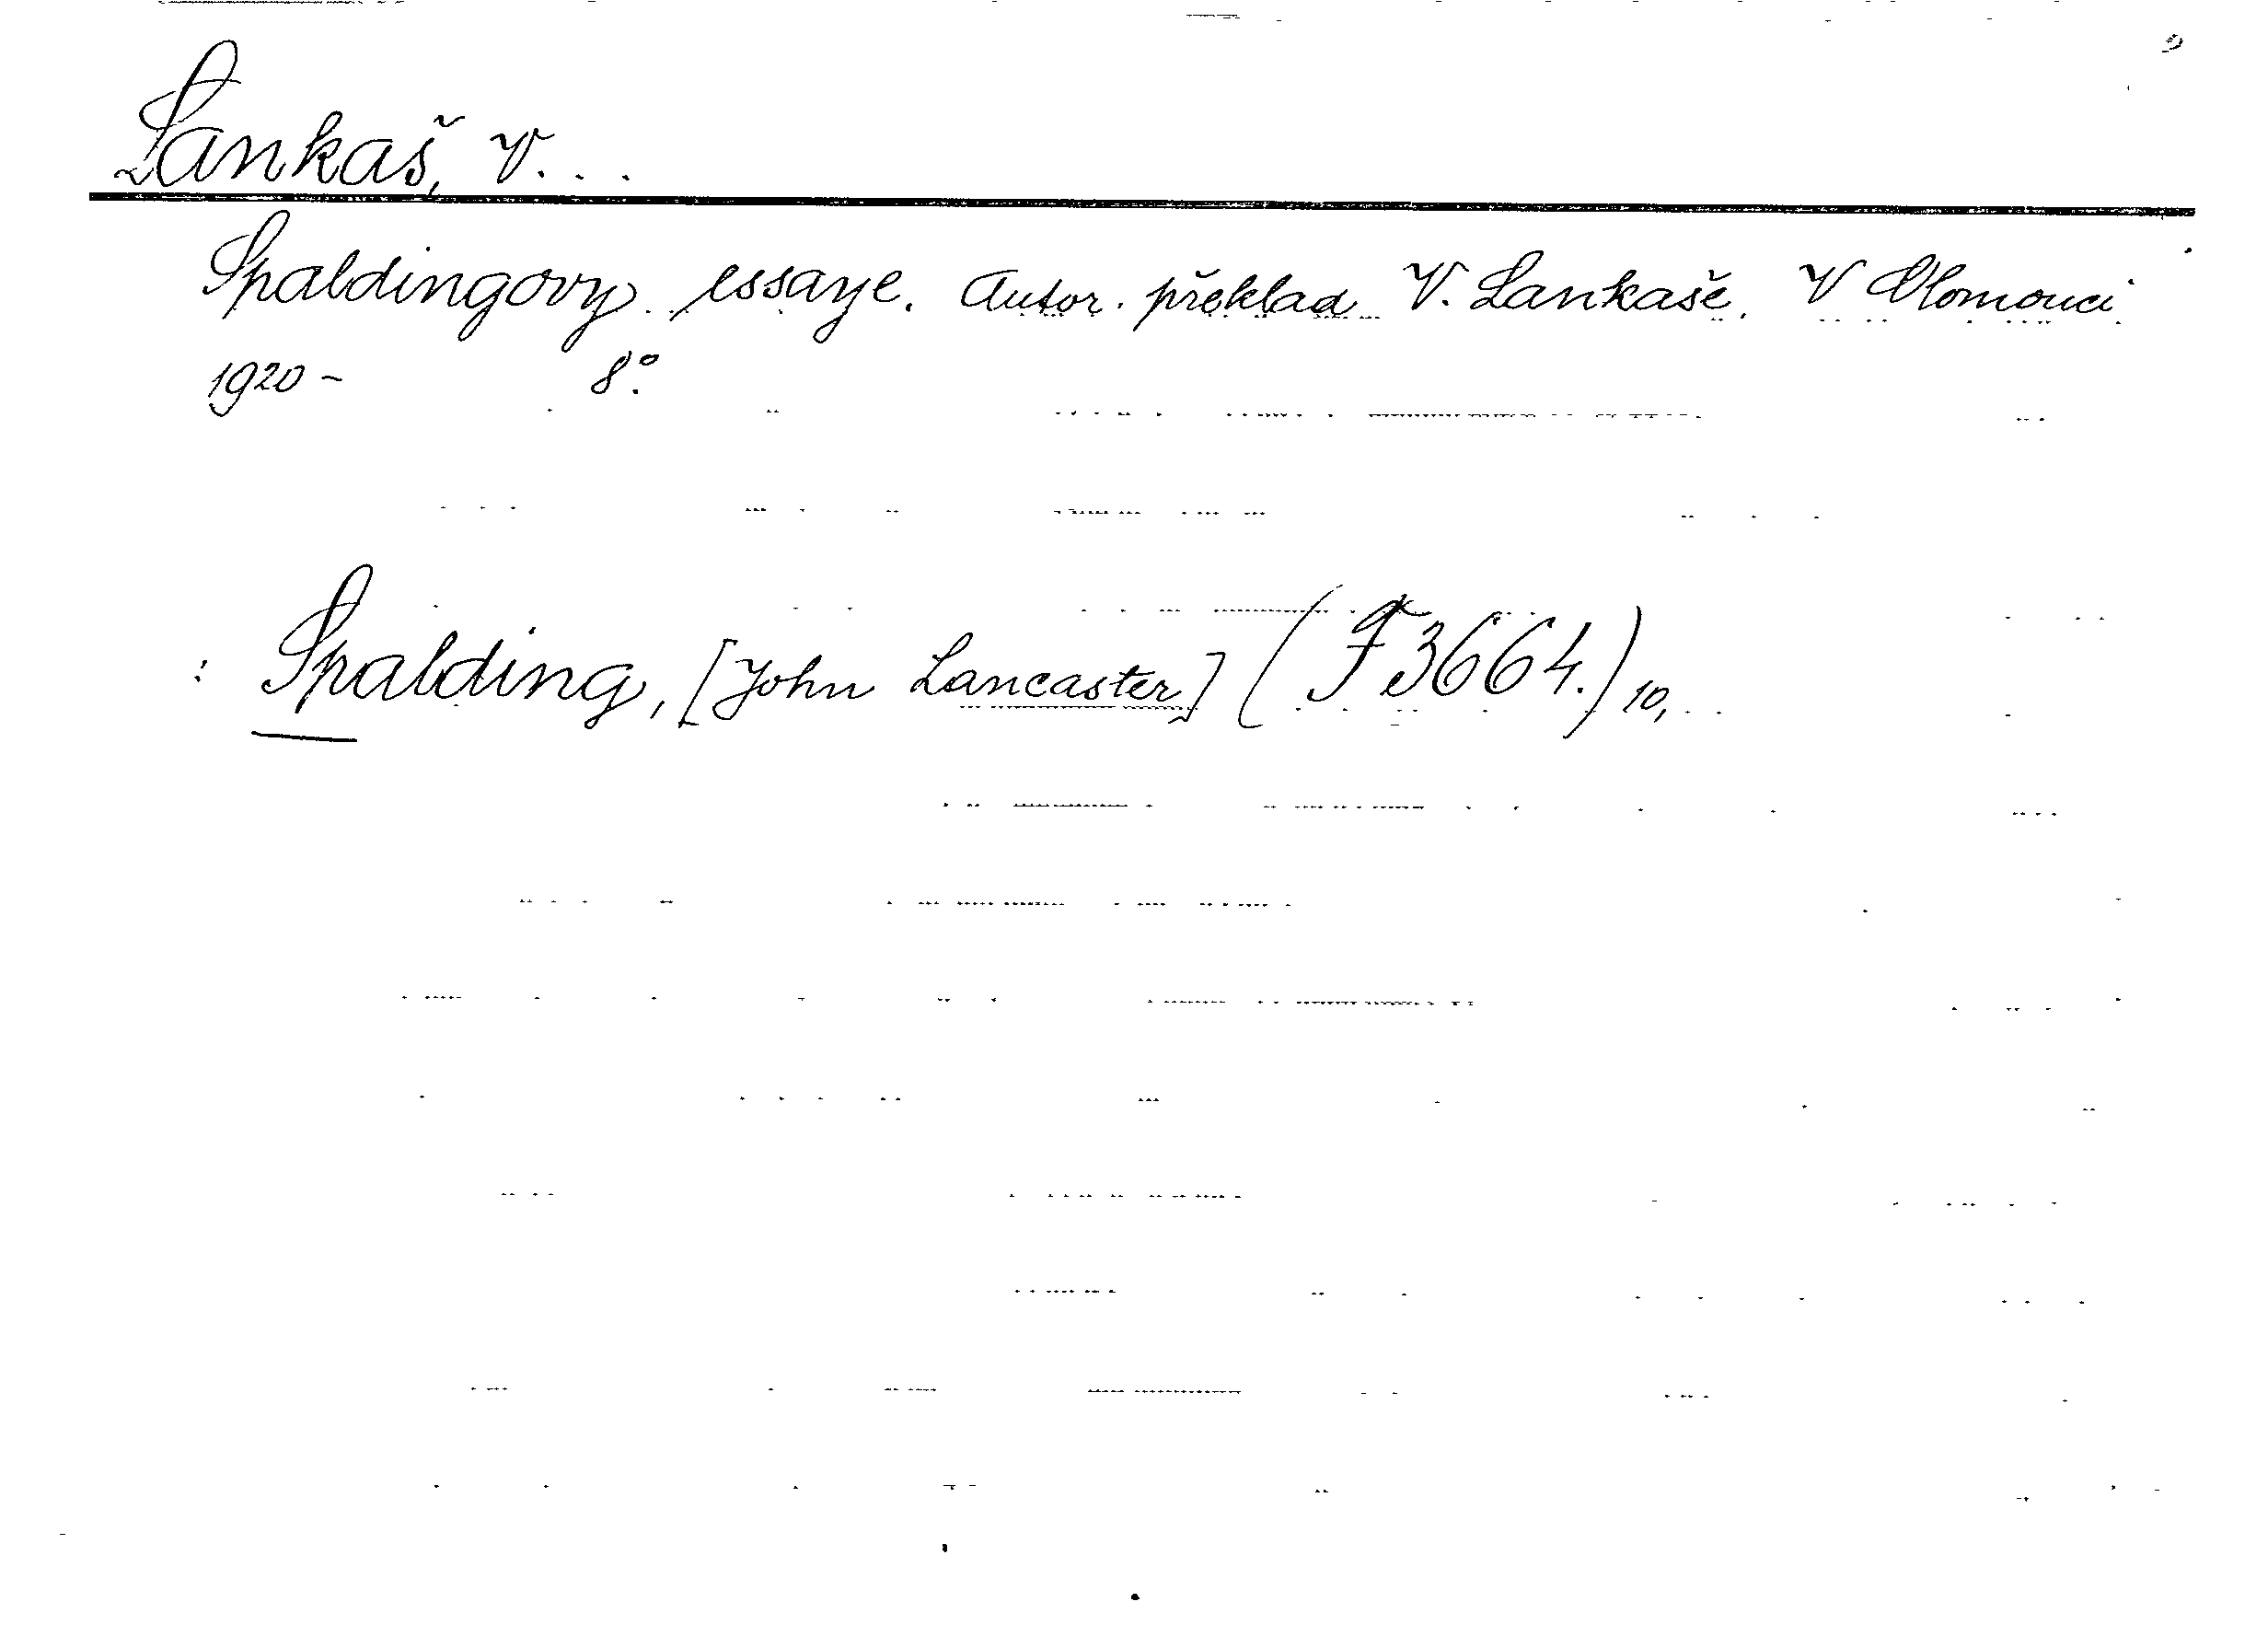 Lankaš, V...
Spaldingovy essaye. Autor. překlad V. Lankaše. V Olomouci
1920 - 8°.
: Spalding, [John Lancaster] (F 3664.) 10,